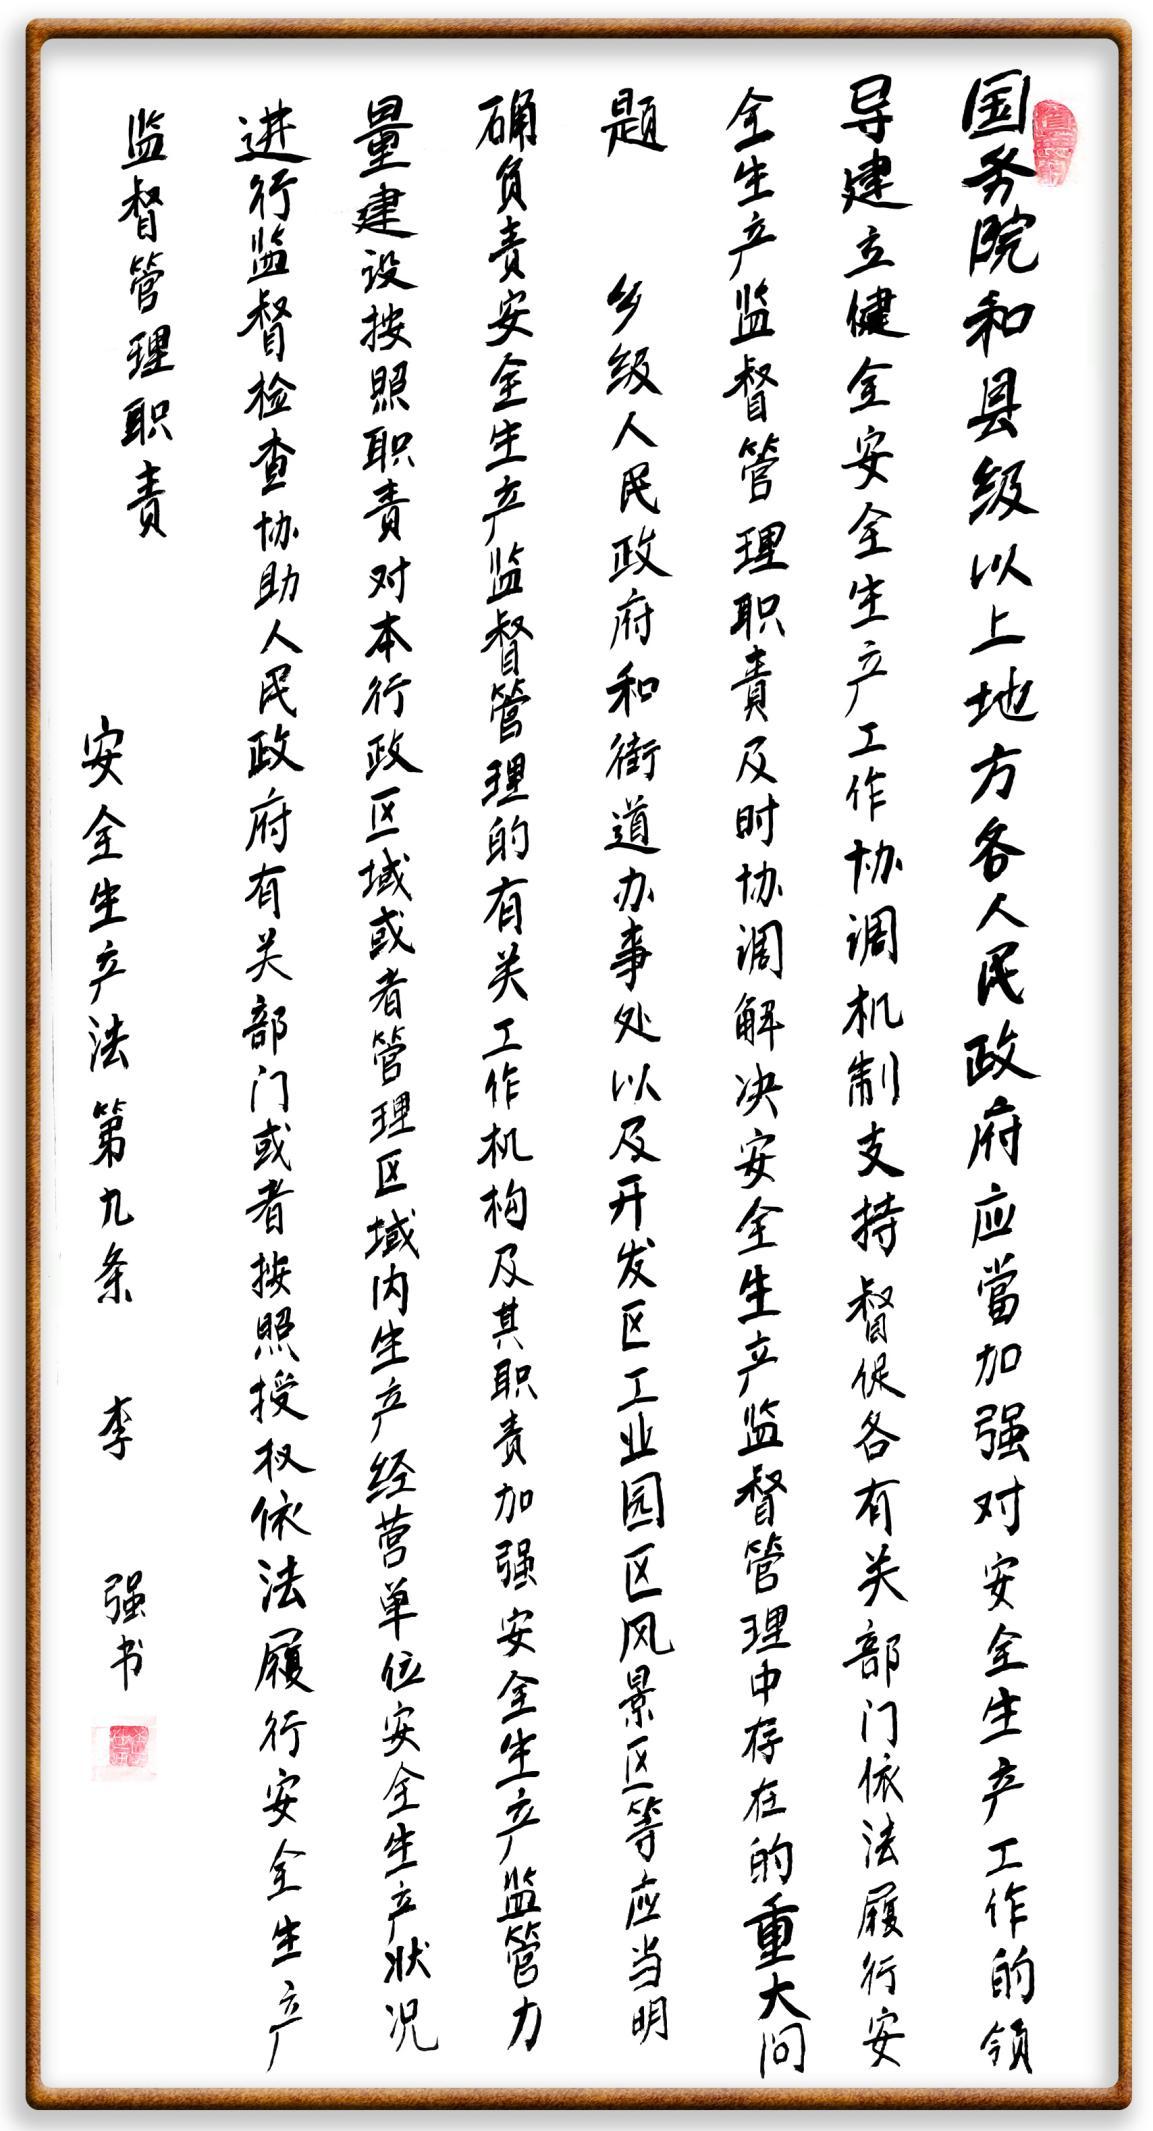 国务院和县级以上地方各人民政府应當加强对安全生产工作的领
导建立健全安全生产工作协调机制支持督促各有关部门依法履行安
全生产监督管理职责及时协调解决安全生产监督管理中存在的重大问
题 乡级人民政府和街道办事处以及开发区工业园区风景区等应当明
确负责安全生产监督管理的有关工作机构及其职责加强安全生产监管力
量建设按照职责对本行政区域或者管理区域内生产经营单位安全生产状况
进行监督检查协助人民政府有关部门或者按照授权依法履行安全生产
监督管理职责
安全生产法第九条 李 强书